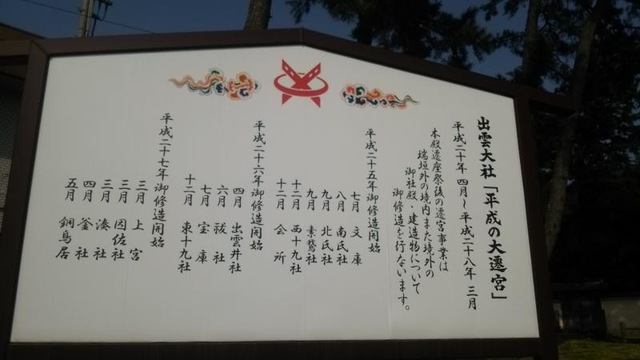 出雲大社「平成の大遷宮」
平成二十年 四月〜平成二十八年 三月
本殿遷座祭後の遷宮事業は
瑞垣外の境内また境外の
御社殿・建造物について
御修造を行ないます。
平成二十五年御修造開始
七月 文庫
八月 南氏社
九月 北氏社
九月 素鵞社
十二月 西十九社
十二月 会所
平成二十六年御修造開始
四月 出雲井社
六月 祓社
七月 宝庫
十二月 東十九社
平成二十七年御修造開始
三月 上宮
三月 因佐社
三月 湊社
四月 釜社
五月 銅鳥居